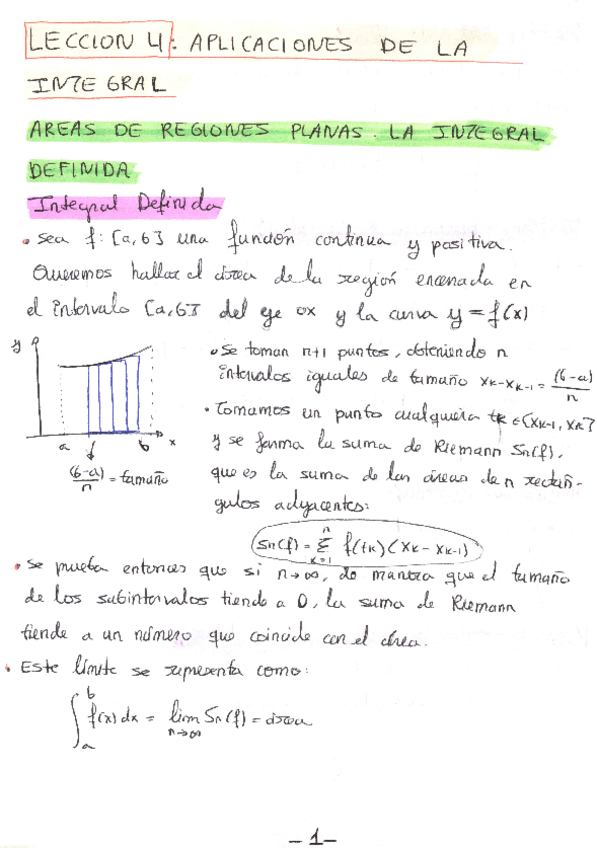 LECCION 4: APLICACIONES DE LA
INTEGRAL
AREAS DE REGIONES PLANAS. LA INTEGRAL
DEFINIDA
Integral Definida
• Sea f: [a,b] una función continua y positiva.
Queremos hallar el área de la región encerrada en
el intervalo [a,b] del eje ox y la curva y = f(x)
y
a b x
(b-a)/n = tamaño
• Se toman n+1 puntos, obteniendo n
intervalos iguales de tamaño xk-xk-1 = (b-a)/n
• Tomamos un punto cualquiera tk ∈ [xk-1, xk]
y se forma la suma de Riemann Sn(f),
que es la suma de las áreas de n rectán-
gulos adyacentes:
Sn(f) = Σ_{k=1}^{n} f(tk) (xk - xk-1)
• Se prueba entonces que si n→∞, de manera que el tamaño
de los subintervalos tiende a 0, la suma de Riemann
tiende a un número que coincide con el área.
• Este límite se representa como:
∫_a^b f(x) dx = lim_{n→∞} Sn(f) = área
- 1 -